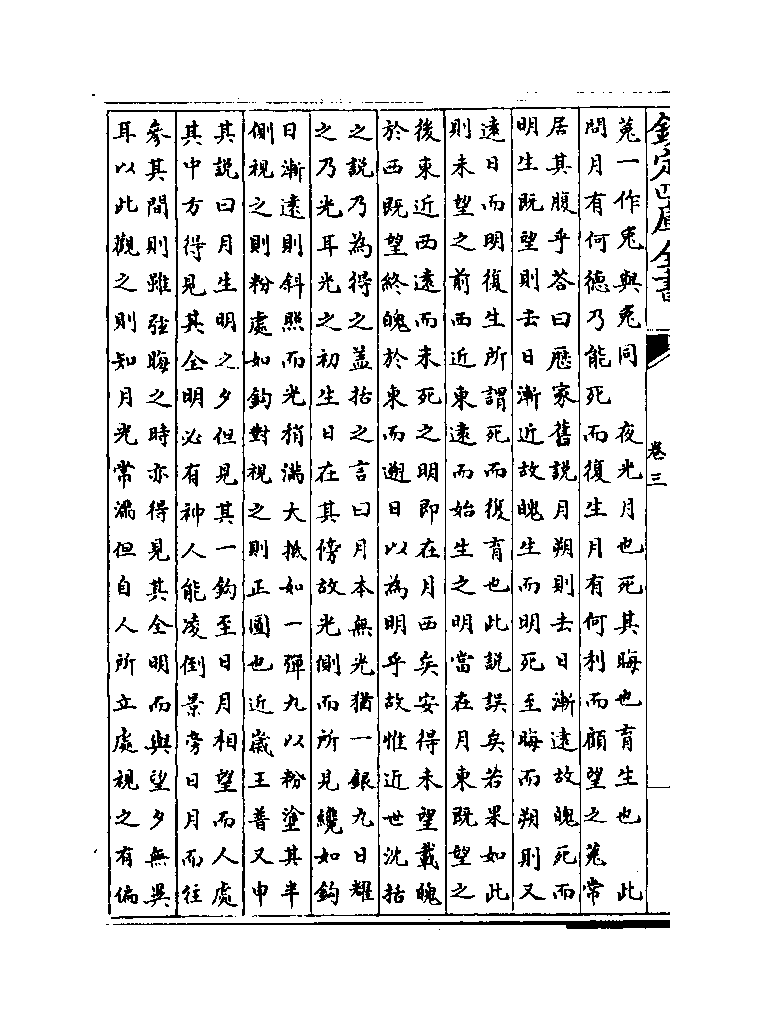 欽定四庫全書
卷三
菟一作兎與兎同　夜光月也死其晦也育生也　此
問月有何德乃能死而復生月有何利而顧望之菟常
居其腹乎答曰歴家舊説月朔則去日漸遠故魄死而
明生既望則去日漸近故魄生而明死至晦而朔則又
遠日而明復生所謂死而復育也此説誤矣若果如此
則未望之前西近東遠而始生之明當在月東既望之
後東近西遠而未死之明即在月西矣安得未望載魄
於西既望終魄於東而遡日以為明乎故惟近世沈括
之説乃為得之盖括之言曰月本無光猶一銀丸日耀
之乃光耳光之初生日在其傍故光側而所見纔如鈎
日漸遠則斜照而光稍滿大抵如一彈丸以粉塗其半
側視之則粉處如鈎對視之則正圓也近嵗王普又申
其説曰月生明之夕但見其一鈎至日月相望而人處
其中方得見其全明必有神人能凌倒景旁日月而往
參其間則雖弦晦之時亦得見其全明而與望夕無異
耳以此觀之則知月光常滿但自人所立處視之有偏